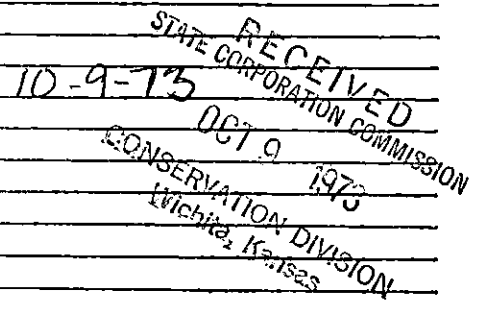 RECEIVED
STATE CORPORATION COMMISSION
10-9-73
OCT 9 1973
CONSERVATION DIVISION
Wichita, Kansas